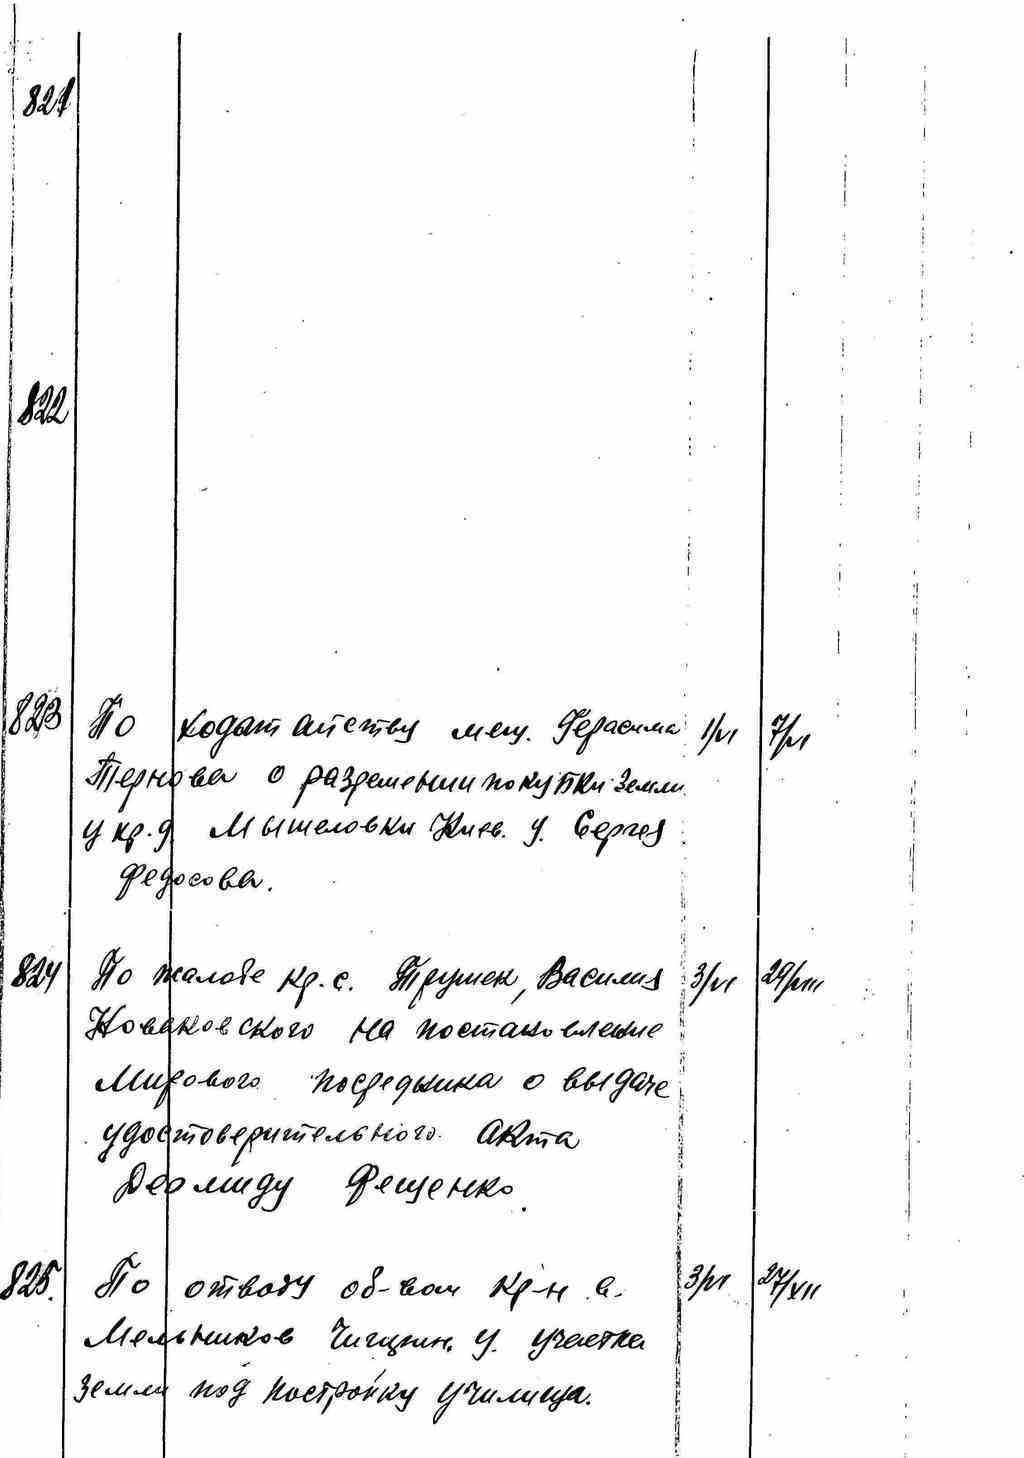 821
822
823 По ходатайству мещ. Герасима 1/VI 7/VI
Тернова о разрешении покупки земли
у кр. д. Мышеловки Киев. у. Сергея
Федосова.
824 По жалобе кр. с. Трушек, Василия 3/VI 29/VIII
Новаковского на постановление
Мирового посредника о выдаче
удостоверительного акта
Деомиду Фещенко.
825. По отводу об-вом кр-н с. 3/VI 27/XII
Мельников Чигирин. у. участка
земли под постройку училища.